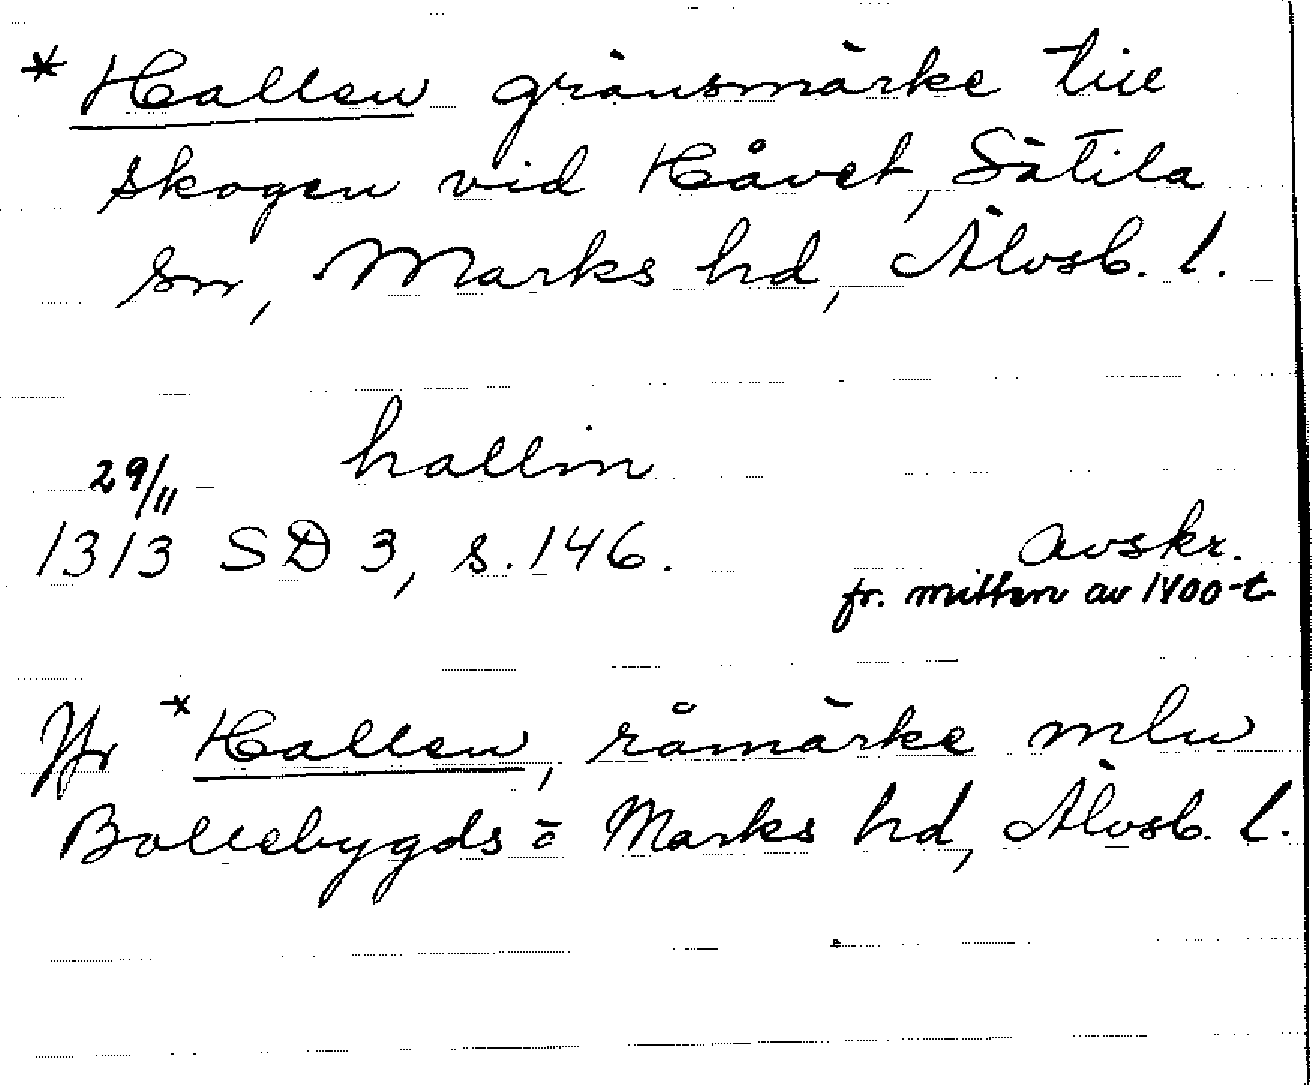 * Hallen gränsmärke till
skogen vid Håvet, Sätila
sn, Marks hd, Älvsb. l.
hallin
29/11
1313 SD 3, s. 146.
avskr.
fr. mitten av 1400-t
Jfr *Hallen, råmärke mln
Bollebygds o Marks hd, Älvsb. l.